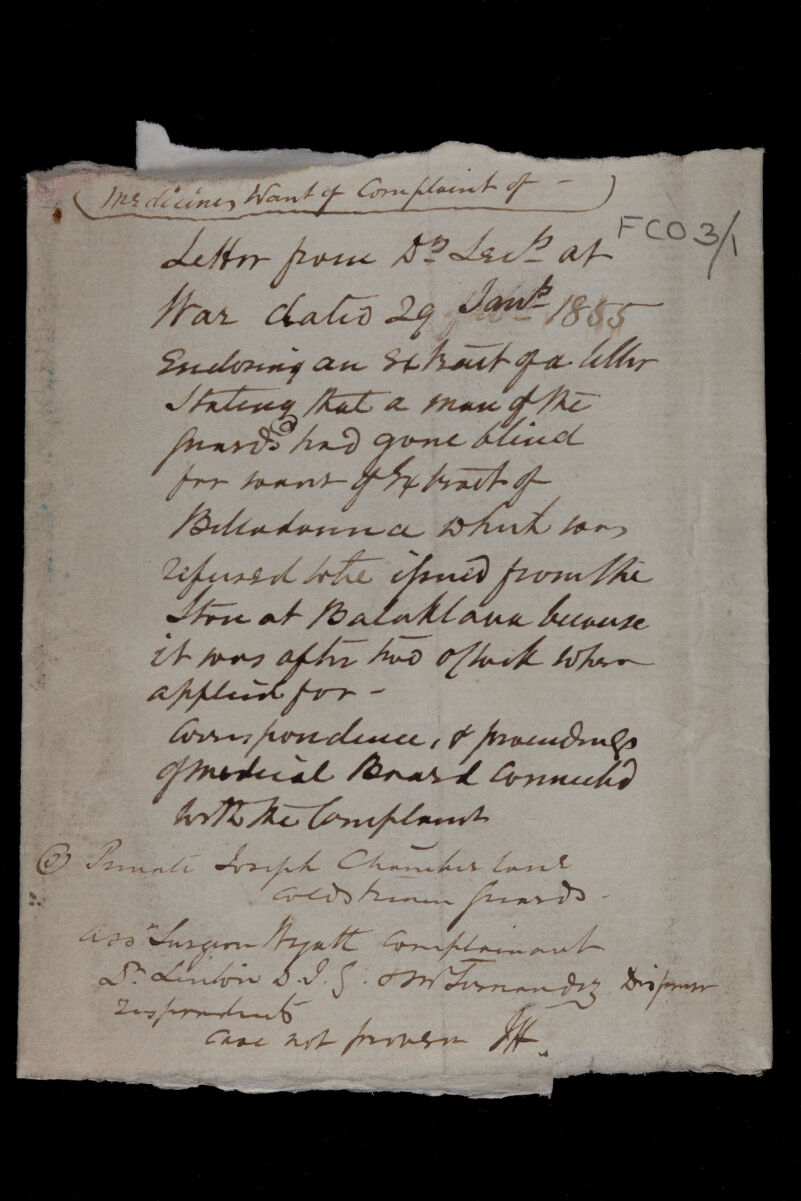 Medicines Want of Complaint of -
FCO 3/1
Letter from Dy Secy at
War dated 29 Jany 1855
Enclosing an Extract of a letter
Stating that a man of the
Guards had gone blind
for want of Extract of
Belladonna which was
refused to be issued from the
Store at Balaklava because
it was after two o'clock when
applied for -
Correspondence, & proceedings
of Medical Board connected
with the Complaint
Private Joseph Chamberlane
Coldstream Guards -
Assn Surgeon Wyatt Complainant
Dr Linton D.I.G. & Mr Fernandez Dispenser
respondents
Case not proven JH.